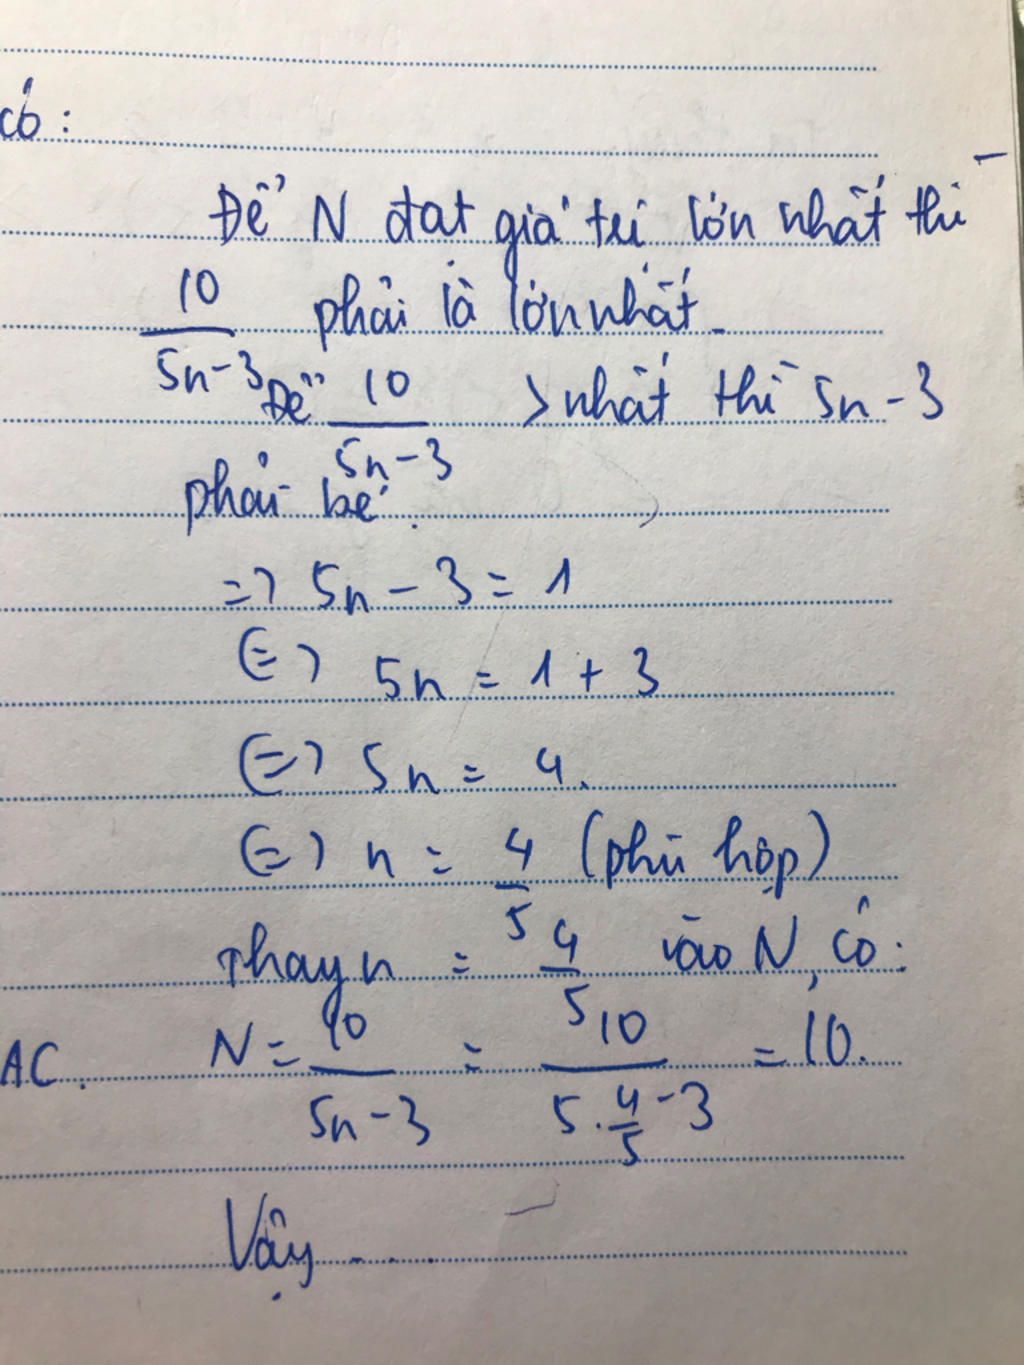 có :
Để N đạt giá trị lớn nhất thì
10/(5n-3) phải là lớn nhất.
Để 10/(5n-3) > nhất thì 5n-3
phải bé.
=> 5n - 3 = 1
(=) 5n = 1 + 3
(=) 5n = 4.
(=) n = 4/5 (phù hợp)
Thay n = 4/5 vào N, có :
AC. N = 10/(5n-3) = 10/(5.4/5-3) = 10.
Vậy .....